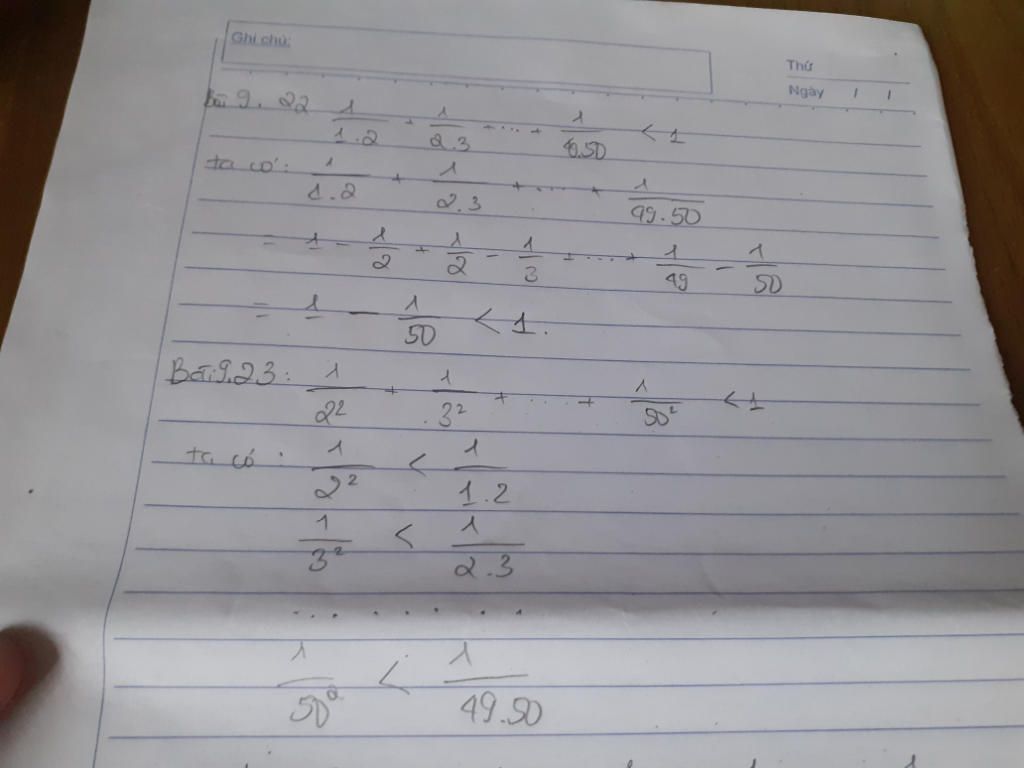 Ghi chú:
Thứ
Ngày / /
Bài 9.22 1/1.2 + 1/2.3 + ... + 1/49.50 < 1
ta có: 1/1.2 + 1/2.3 + ... + 1/49.50
= 1 - 1/2 + 1/2 - 1/3 + ... + 1/49 - 1/50
= 1 - 1/50 < 1.
Bài 9.23: 1/2² + 1/3² + .... + 1/50² < 1
ta có : 1/2² < 1/1.2
1/3² < 1/2.3
.........
1/50² < 1/49.50